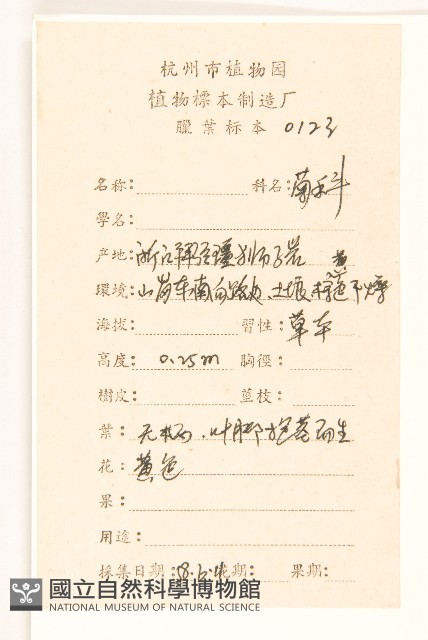 杭州市植物园
植物標本制造厂
臘葉标本 0123
名称: 科名: 菊科
學名:
产地: 浙江 獅子岩
環境: 山崗东南向 土壤 黄 干燥
海拔: 習性: 草本
高度: 0.25m 胸徑:
樹皮: 莖枝:
葉: 无柄，叶脚抱莖而生
花: 黄色
果:
用途:
採集日期: 花期: 果期:
國立自然科學博物館
NATIONAL MUSEUM OF NATURAL SCIENCE